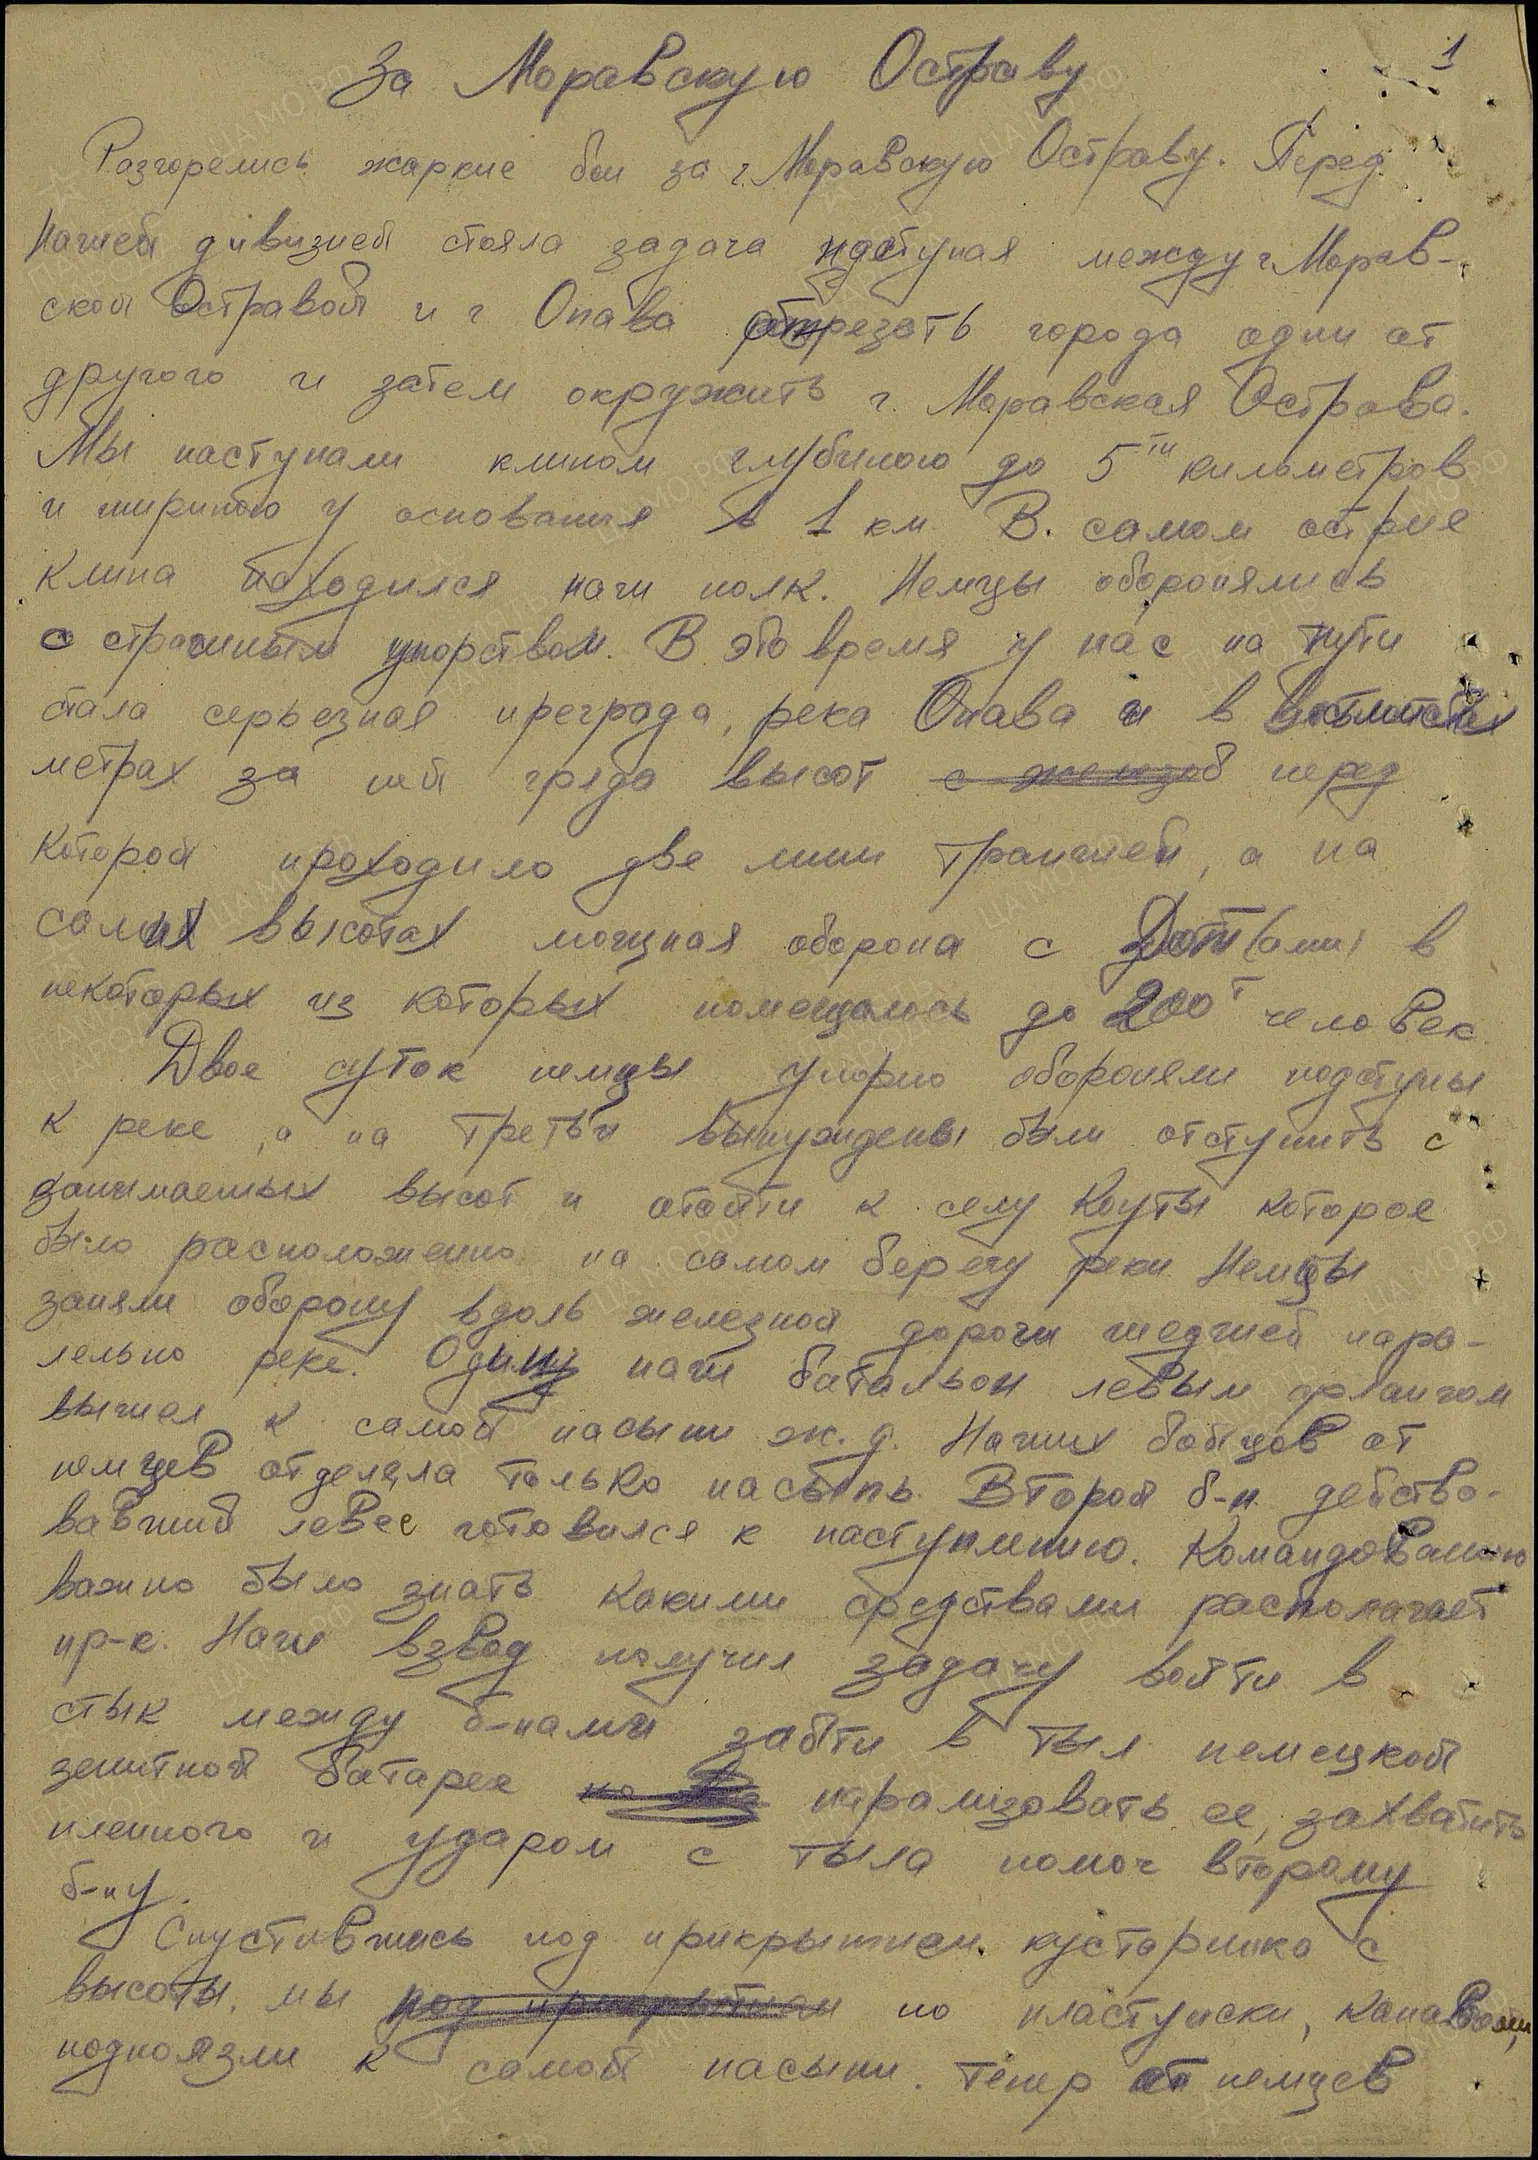 1
За Моравскую Остраву
Разгорелись жаркие бои за г. Моравскую Остраву. Перед
нашей дивизией стояла задача наступая между г Морав-
ской Остравой и г Опава отрезать города один от
другого и затем окружить г. Моравская Острава.
Мы наступали клином глубиною до 5ти километров
и шириною у основания в 1 км. В самом острие
клина находился наш полк. Немцы оборонялись
с страшным упорством. В это время у нас на пути
стала серьезная преграда, река Опава и в
метрах за ней гряда высот с железоб перед
которой проходило две лини траншей, а на
самих высотах мощная оборона с Дот(ами) в
некоторых из которых помещалось до 200т человек.
Двое суток немцы упорно обороняли подступы
к реке, а на третьи вынуждены были отступить с
занимаемых высот и отойти к селу Коуты которое
было расположенно на самом берегу реки Немцы
заняли оборону вдоль железной дороги шедшей пара-
лельно реке. Один наш батальон левым флангом
вышел к самой насыпи ж. д. Наших бойцов от
немцев отделяла только насыпь. Второй б-н. действо-
вавший левее готовился к наступлению. Командованию
важно было знать какими средствами располагает
пр-к. Наш взвод получил задачу войти в
стык между б-нами зайти в тыл немецкой
зенитной батарее парализовать ее, захватить
пленного и ударом с тыла помоч второму
б-ну.
Спустившись под прикрытием кустарника с
высоты, мы под прикрытием по пластунски, канавами,
подползли к самой насыпи. Тепер от немцев